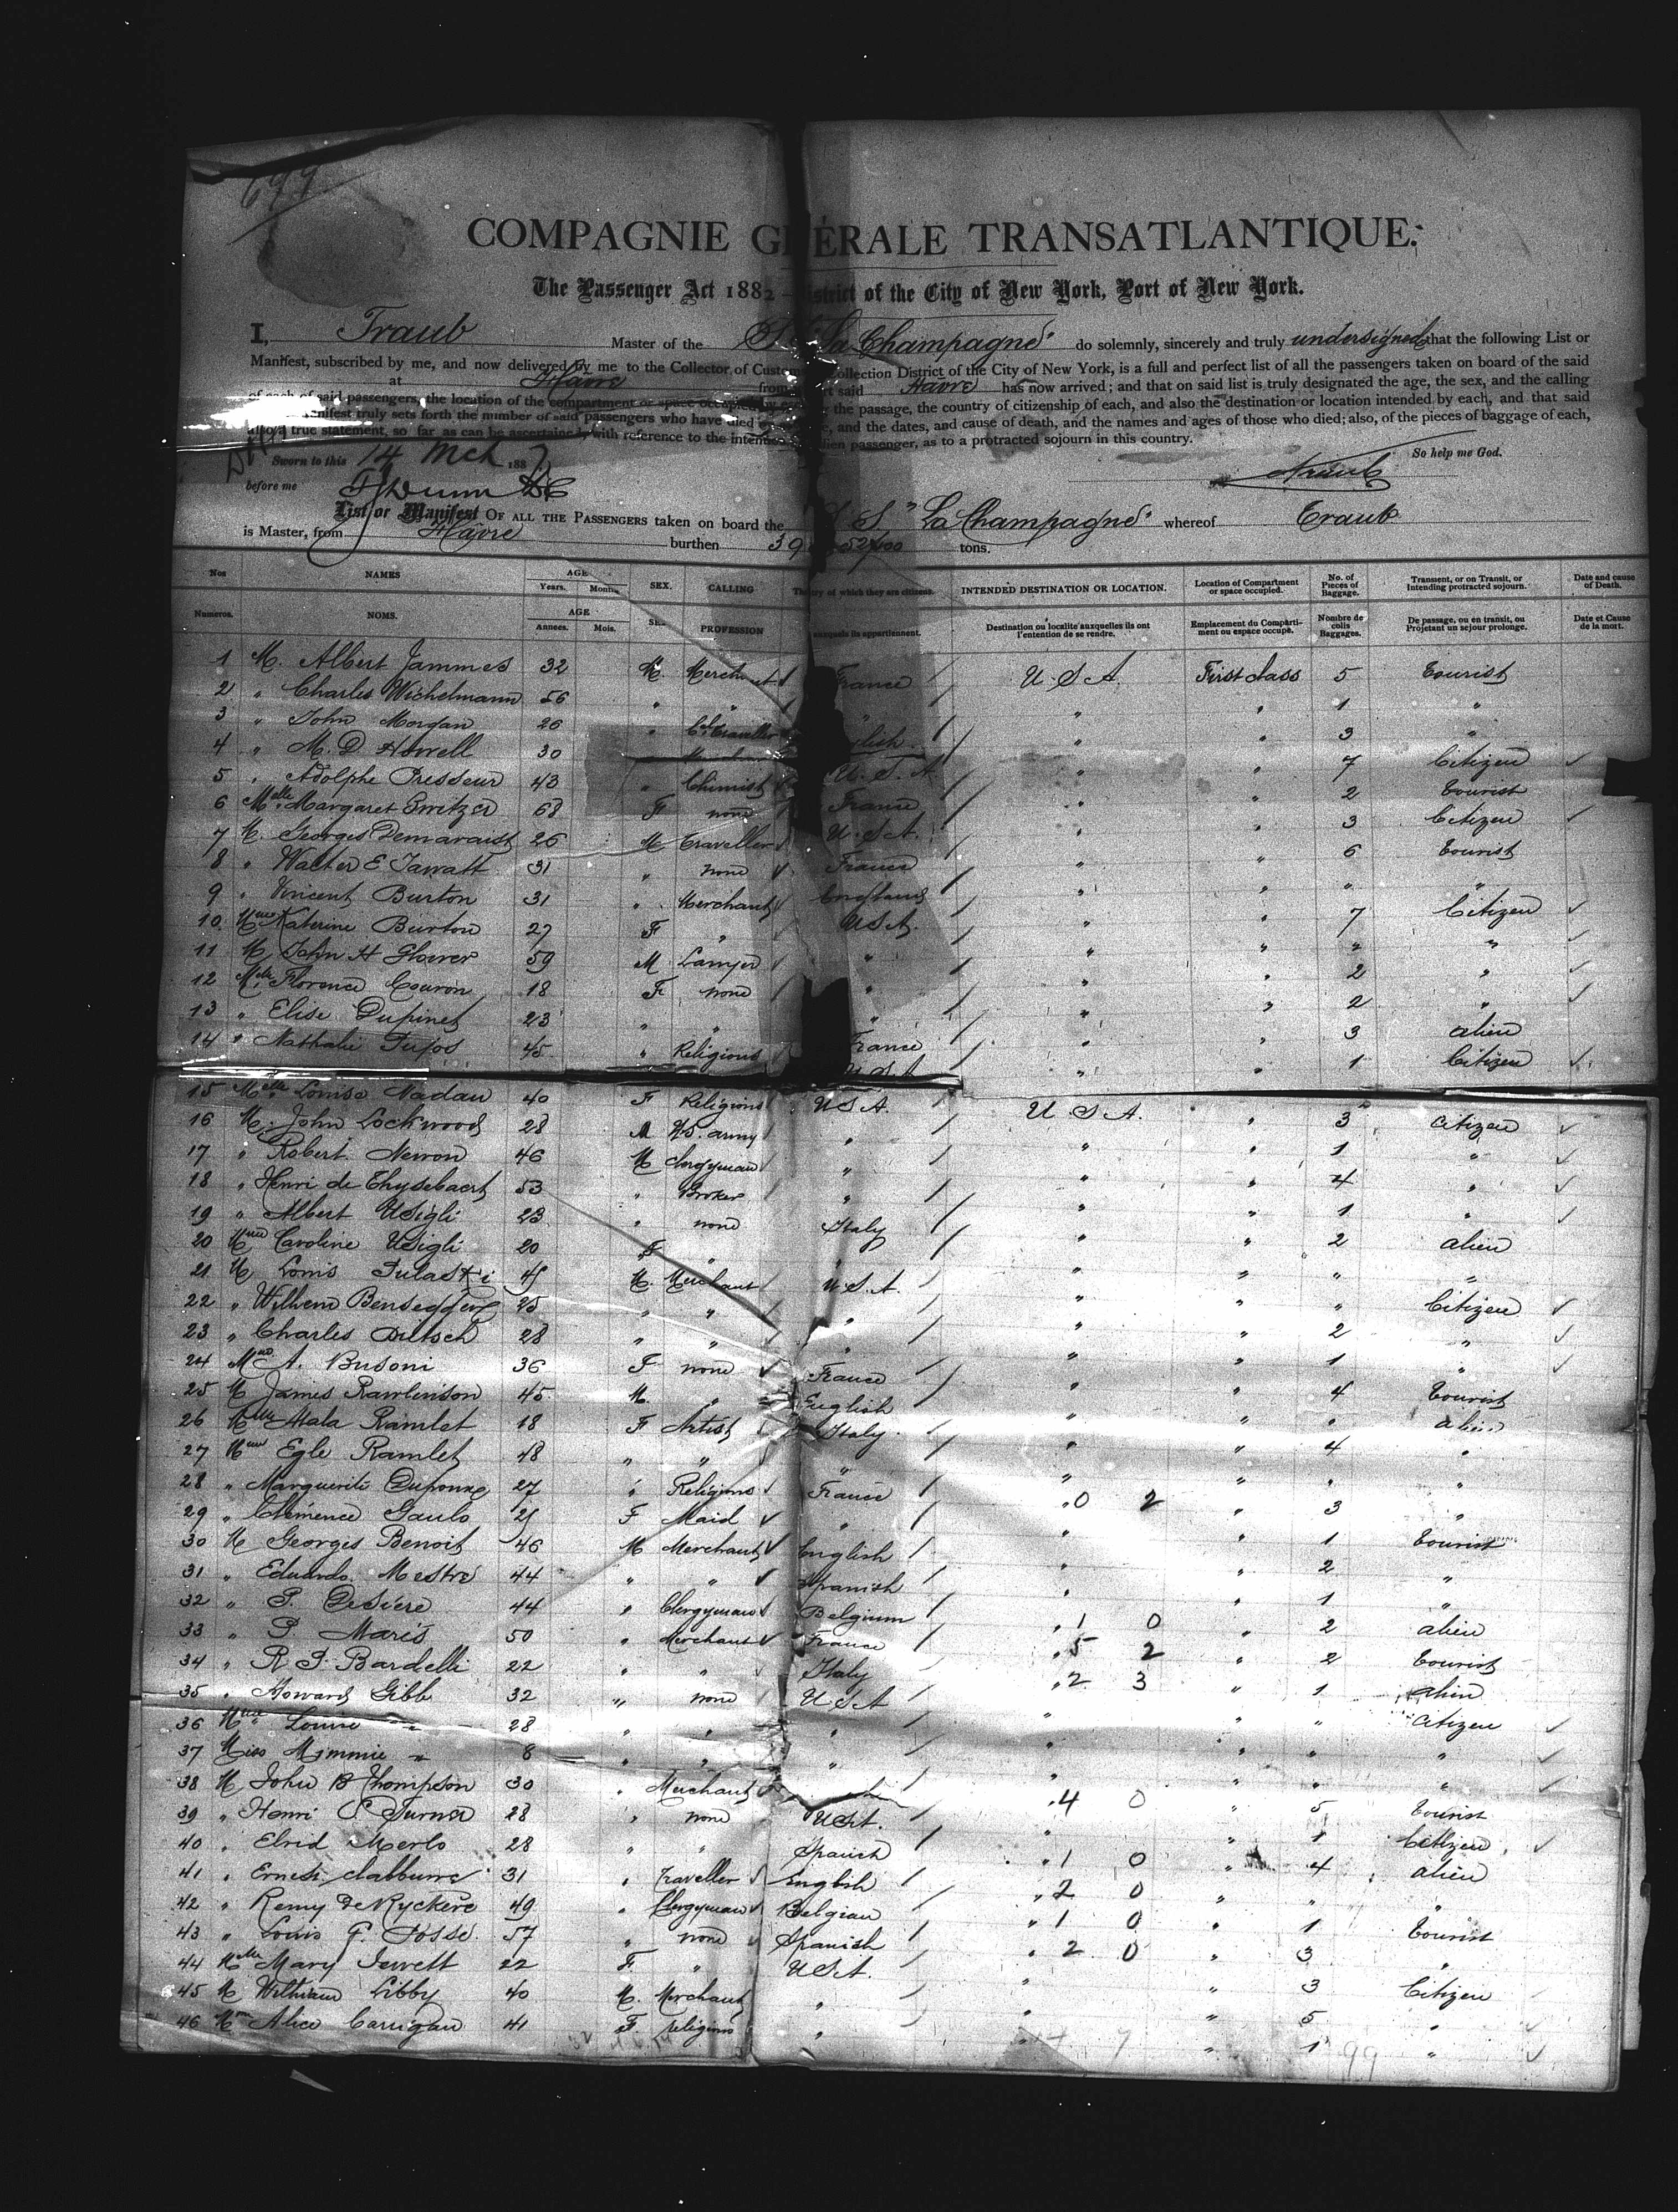 699
COMPAGNIE G ÉRALE TRANSATLANTIQUE.
The Passenger Act 1882 — District of the City of New York, Port of New York.
I, Traub Master of the S.S. "La Champagne" do solemnly, sincerely and truly undersigned that the following List or
Manifest, subscribed by me, and now delivered by me to the Collector of Customs Collection District of the City of New York, is a full and perfect list of all the passengers taken on board of the said
at Havre from said Havre has now arrived; and that on said list is truly designated the age, the sex, and the calling
of each of said passengers, the location of the compartment or space occupied by the passage, the country of citizenship of each, and also the destination or location intended by each, and that said
manifest truly sets forth the number of said passengers who have died and the dates, and cause of death, and the names and ages of those who died; also, of the pieces of baggage of each,
also a true statement, so far as can be ascertained, with reference to the alien passenger, as to a protracted sojourn in this country.
Sworn to this 14 Mch 1887 So help me God.
before me Traub
List or Manifest OF ALL THE PASSENGERS taken on board the S.S. "La Champagne" whereof Traub
is Master, from Havre burthen tons.
Nos NAMES AGE Years. Months. SEX. CALLING of which they are citizens. INTENDED DESTINATION OR LOCATION. Location of Compartment or space occupied. No. of Pieces of Baggage. Transient, or on Transit, or Intending protracted sojourn. Date and cause of Death.
Numeros. NOMS. AGE Annees. Mois. PROFESSION auxquels ils appartiennent. Destination ou localité auxquelles ils ont l'entention de se rendre. Emplacement du Compartiment ou espace occupé. Nombre de colis Baggages. De passage, ou en transit, ou Projetant un sejour prolonge. Date et Cause de la mort.
1 M. Albert Jammes 32 M. Merchant France U.S.A First class 5 Tourist
2 " Charles Wichelmann 56 " " " " " 1 "
3 " John Morgan 26 " Traveller " " 3 "
4 " M. D. Howell 30 U.S.A " " 7 Citizen
5 " Adolphe Presseur 43 " Chimist France " " 2 Tourist
6 Melle Margaret Switzer 68 F none U.S.A. " " 3 Citizen
7 M. Georges Demaraist 26 M Traveller France " " 6 Tourist
8 " Walter E Jarratt 31 " none England " " " "
9 " Vincent Burton 31 " Merchant U.S.A. " " 7 Citizen
10 Mme Katerine Burton 27 F " " " " " "
11 M John H Glover 59 M Lawyer " " " 2 "
12 Melle Florence Couron 18 F none " " " 2 "
13 " Elise Dupinet 23 " " France " " 3 alien
14 " Nathalie 45 " Religious U.S.A " " 1 Citizen
15 Melle Louise Nadau 40 F Religious U.S.A. U.S.A. " 3 Citizen
16 M. John Lockwood 28 M U.S. army " " " 1 "
17 " Robert 46 M Clergyman " " " 4 "
18 " Henri de Thysebaert 53 " Broker " " " 1 "
19 " Albert Usigli 23 " none Italy " " 2 alien
20 Mme Caroline Usigli 20 F " " " " " "
21 M Louis Pulaski M. Merchant U.S.A. " " " Citizen
22 " Wilhem 25 " " " " " 2 "
23 " Charles 28 " " " " " 1 "
24 Mme A. Busoni 36 F none France " " 4 Tourist
25 M James Rawlinson 45 M. " English " " " alien
26 Melle Atala Ramlet 18 F Artist Italy " " 4 "
27 Mme Egle Ramlet 48 " " " " " " "
28 " Marguerite 27 " Religious France " 0 2 " 3 "
29 " Clémence Gaulo F Maid " " " 1 Tourist
30 M Georges Benoit 46 M Merchant English " " 2 "
31 " Eduardo Mestre 44 " " Spanish " " 1 "
32 " P. Desiere 44 " Clergyman Belgium " 1 0 " 2 alien
33 " P Maris 50 " Merchant France " 5 2 " 2 Tourist
34 " R. J. Bardelli 22 " " Italy " 2 3 " 1 alien
35 " Howard Gibb 32 " none U.S.A " " " Citizen
36 Mme Louise " 28 " " " " " " "
37 Miss Mimmie " 8 " " " " " " "
38 M John B Thompson 30 " Merchant " 4 0 " 5 Tourist
39 " Henri S Turner 28 " none U.S.A. " " 1 Citizen
40 " Elrid Merlo 28 " " Spanish " 1 0 " 4 alien
41 " Ernest Clabburn 31 " Traveller English " 2 0 " " "
42 " Remy De Ryckere 49 " Clergyman Belgian " 1 0 " 1 Tourist
43 " Louis F. Posse 57 " none Spanish " 2 0 " 3 "
44 Melle Mary Jewett 22 F " U.S.A. " " 3 Citizen
45 M William Libby 40 M. Merchant " " " 5 "
46 Mme Alice Carrigan 41 F. religious " " " 1 "
99